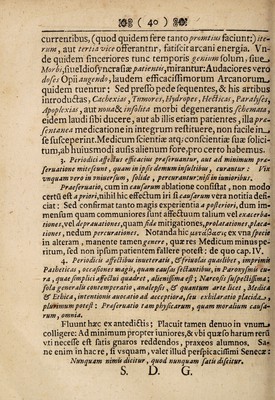 ( 40 )
currentibus, (quod quidem fere tanto promtius faciunt:) ite-
rum, aut tertia vice offerantur, fatiscit arcani energia. Vn-
de quidem sinceriores tunc temporis genium solum, sive
Morbi, sive Idiosyncrasiæ patientis, mirantur: Audaciores vero
doses Opii augendo, laudem efficacissimorum Arcanorum
quidem tuentur: Sed presso pede sequentes, & his artibus
introductas, Cachexias, Tumores, Hydropes, Hecticas, Paralyses,
Apoplexias, aut nova & insolita morbi degenerantis schemata,
eidem laudi sibi ducere, aut ab illis etiam patientes, illa præ-
sentanea medicatione in integrum restituere, non facile in
se susceperint. Medicum scientiæ atq; conscientiæ suæ solici-
tum, ab hujusmodi autis alienum fore, pro certo habemus.
3. Periodici affectus efficacius præservantur, aut ad minimum præ-
servatione mitescunt, quam in ipso demum insultibus, curantur: Vix
unquam vero in juvenibus, solide, percurantur, nisi in junioribus.
Præservatio, cum in causarum ablatione consistat, non modo
certū est a priori, nihil hic efficiendi fore, ni causarum vera notitia defi-
ciat: Sed confirmat tanto magis experientia a posteriori, dum im-
mensum quam communiores sunt affectuum talium vel exacerba-
tiones, vel depravationes, quam sunt mitigationes, prolatationes, placa-
tiones, nedum percurationes. Notanda hic avidaces; ex una specie
in alteram, manente tamen genere, quæ res Medicum minus pe-
ritum, sed non ipsum patientem fallere potest: de quo cap. IV.
4. Periodicis affectibus inveteratis, & sexualis quasi libet, imprimis
Patheticis, occasiones magis, quam causas sectantibus, in Paroxysmis cu-
ra, quæ simplici affectui quadret, alienissima est; Narcosis suspectissima;
sola generalis contemperatio, analepsis, & quantum arte licet, Medica
& Ethica, intentionis avocatio ad acceptiora, seu exhilaratio placida,
plurimum potest: Præservatio tam physicarum, quam moralium causa-
rum, omnia.
Fluunt hæc ex antedictis; Placuit tamen denuo in vnum
colligere: Ad minimum propter juniores, & vbi quæso harum rerū
vti necesse est satis gnaros reddendos, praxeos alumnos. Sa-
ne enim in hacre, si vsquam, valet illud perspicacissimi Senecæ:
Nunquam nimis dicitur, quod nunquam satis discitur.
S. D. G.